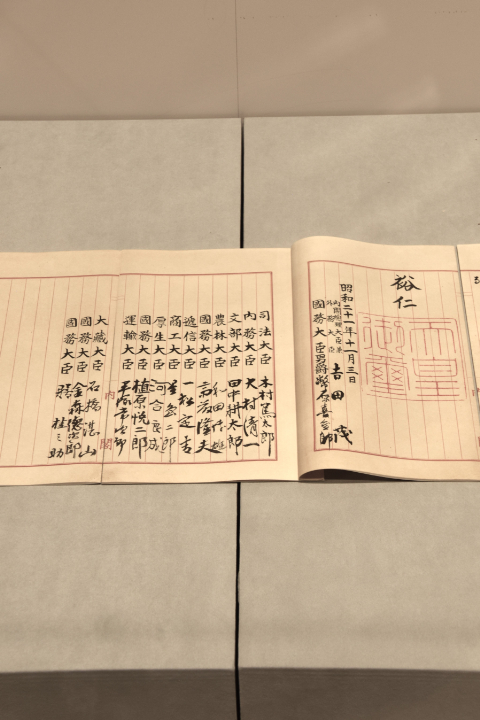 裕仁
天皇御璽
昭和二十一年十一月三日
内閣總理大臣兼
外務大臣 吉田茂
國務大臣 男爵幣原喜重郎
司法大臣 木村篤太郎
内務大臣 大村清一
文部大臣 田中耕太郎
農林大臣 和田博雄
國務大臣 斎藤隆夫
遞信大臣 一松定吉
商工大臣 星島二郎
厚生大臣 河合良成
國務大臣 植原悦二郎
運輸大臣 平塚常次郎
内閣
大藏大臣 石橋湛山
國務大臣 金森徳次郎
國務大臣 膳桂之助